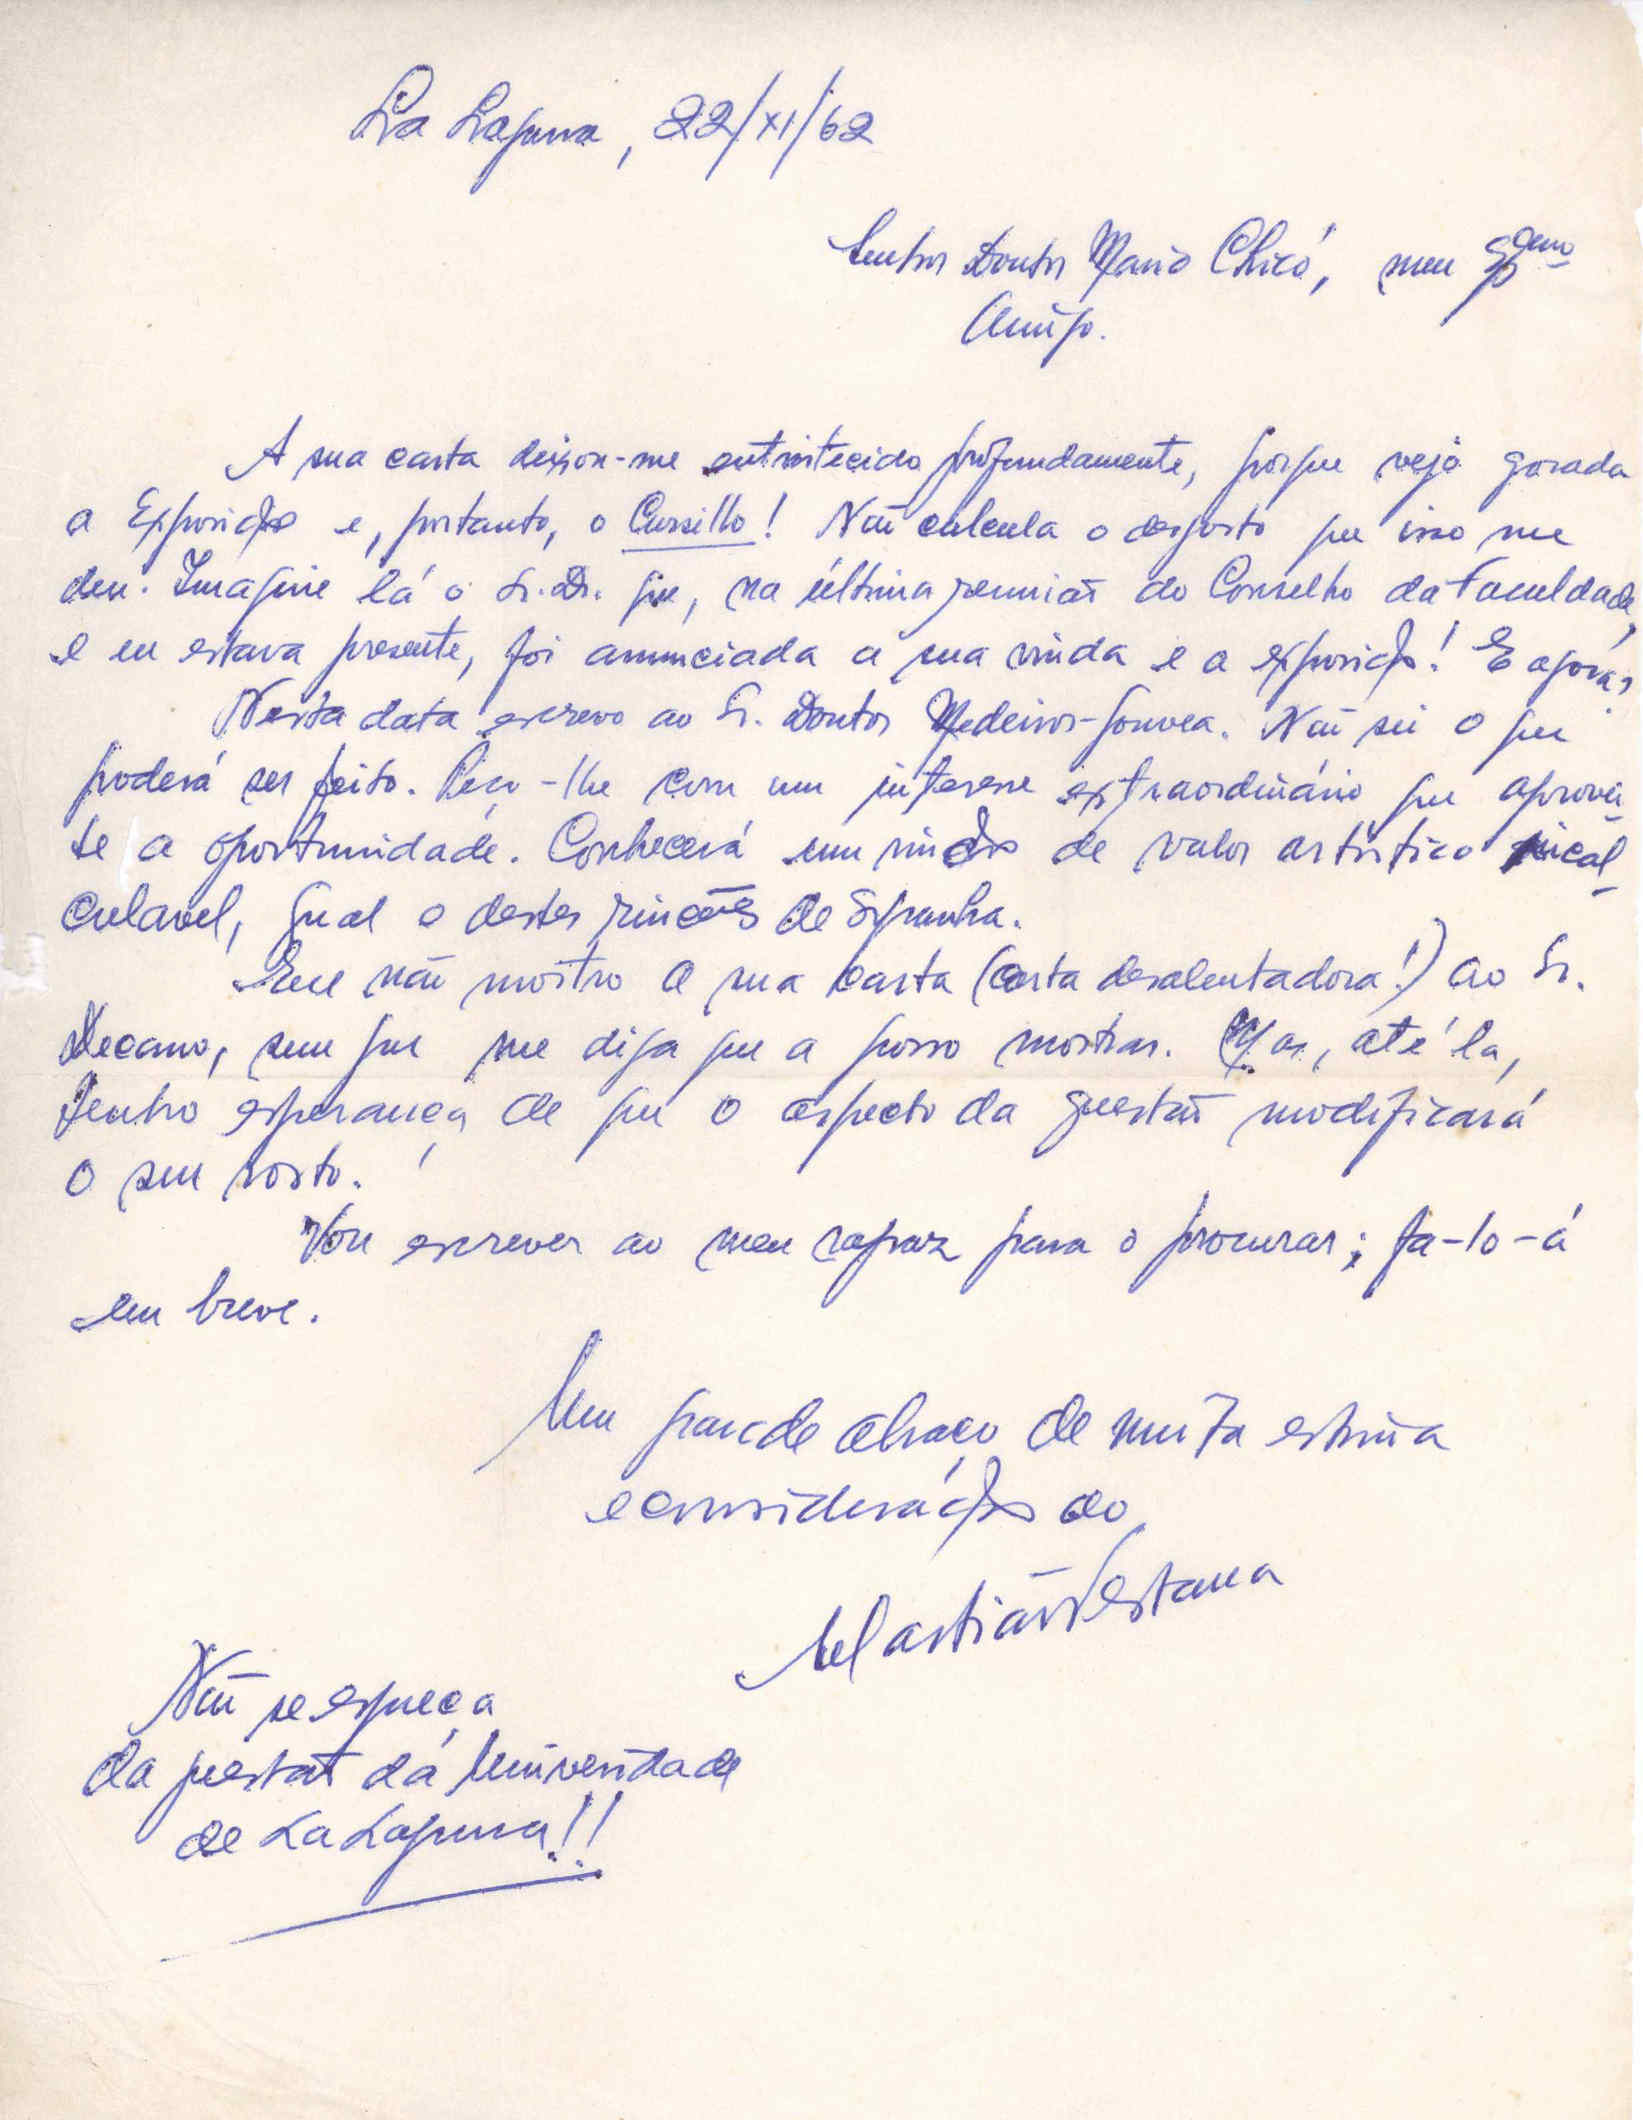 La Laguna, 22/XI/62
Senhor Doutor Mario Chicó, meu
Amigo.
A sua carta deixou-me entristecido profundamente, porque vejo gorada
a Exposição e, portanto, o Cursillo! Não calcula o desgosto que isso me
deu. Imagine lá o Sr. Dr. que, na última reunião do Conselho da Faculdade,
e eu estava presente, foi anunciada a sua vinda e a exposição! E agora?
Nesta data escrevo ao Sr. Doutor Medeiros-Gouvea. Não sei o que
poderá ser feito. Peço-lhe com um interesse extraordinário que aprovei-
te a oportunidade. Conhecerá um rincão de valor artístico incal-
culavel, qual o destes rincões de Espanha.
Eu não mostro a sua carta (carta desalentadora!) ao Sr.
Decano, sem que me diga que a posso mostrar. Mas, até lá,
tenho esperança de que o aspecto da questão modificará
o seu rosto.
Vou escrever ao meu rapaz para o procurar; fa-lo-á
em breve.
Um grande abraço de muita estima
e consideração do
Sebastião Pestana
Não se esqueça
da questão da Universidade
de La Laguna!!